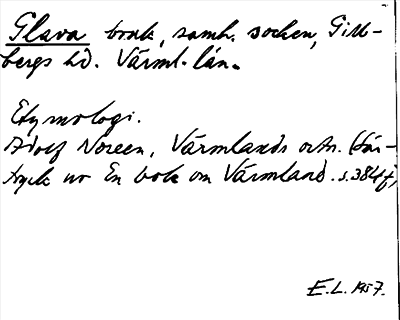 Glava bruk, samh. socken, Gill-
bergs hd. Värml. län.
Etymologi.
Adolf Noreen, Värmlands ortn. (Sär-
tryck ur En bok om Värmland. s. 384 f)
E.L. 1957.